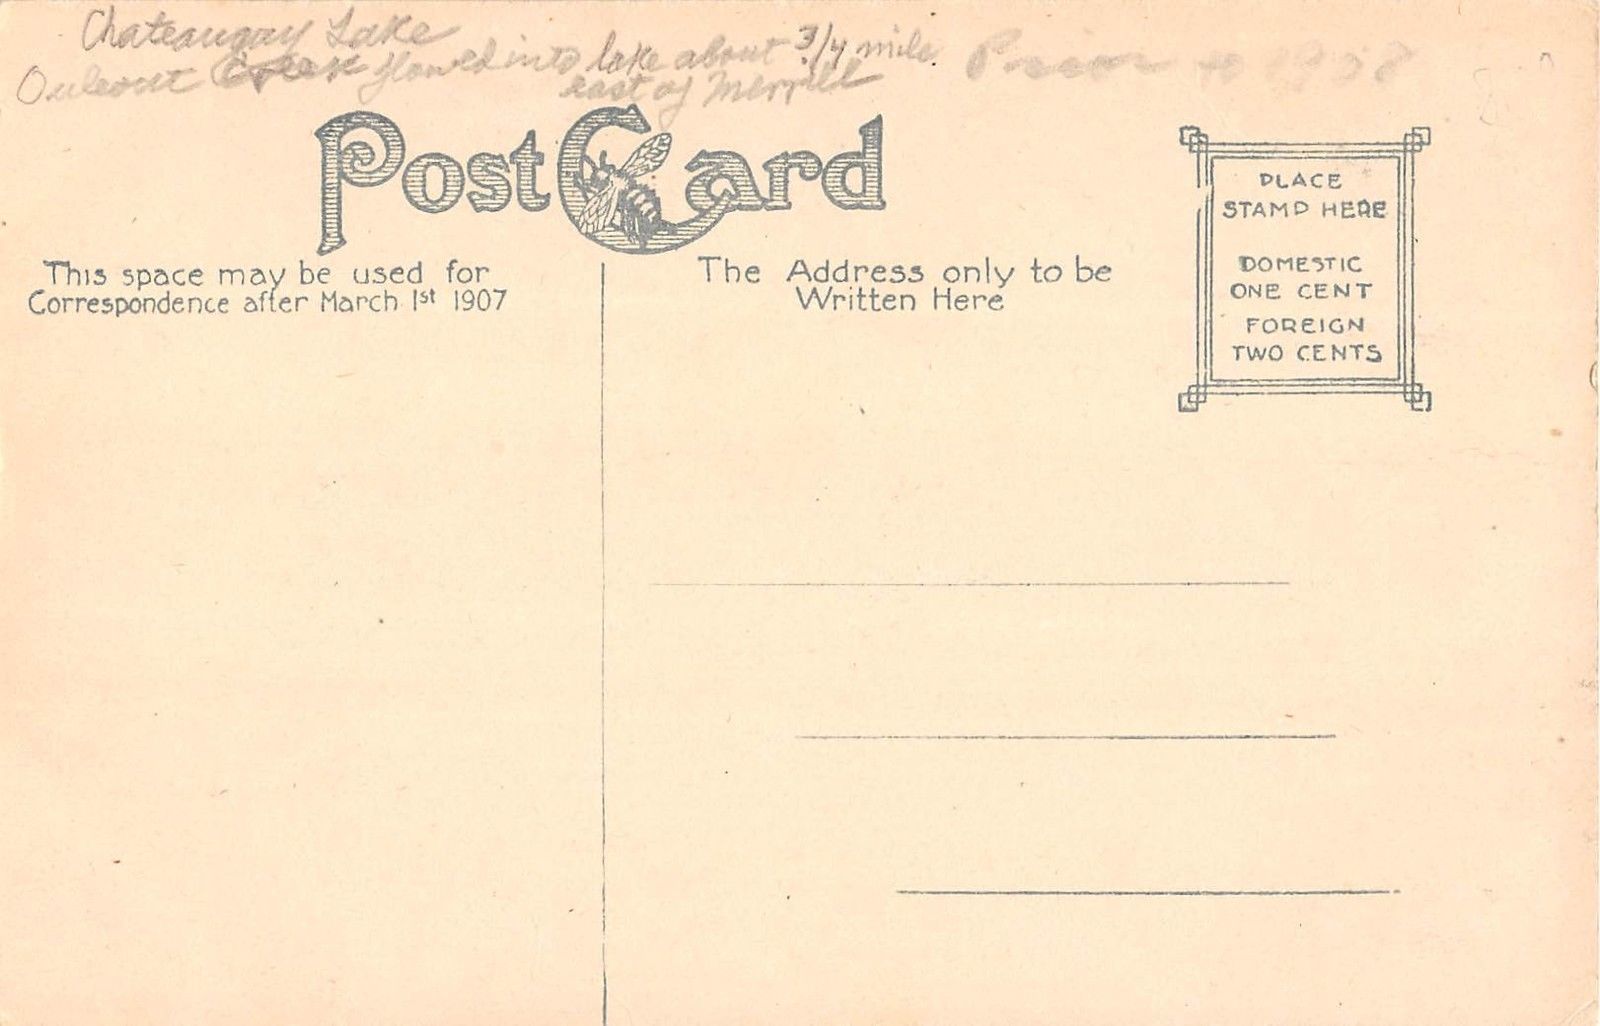 Chateaugay Lake
Ouleout Creek flowed into lake about 3/4 mile
east of Merrill
Prior to 1908
PostCard
This space may be used for
Correspondence after March 1st 1907
The Address only to be
Written Here
PLACE
STAMP HERE
DOMESTIC
ONE CENT
FOREIGN
TWO CENTS